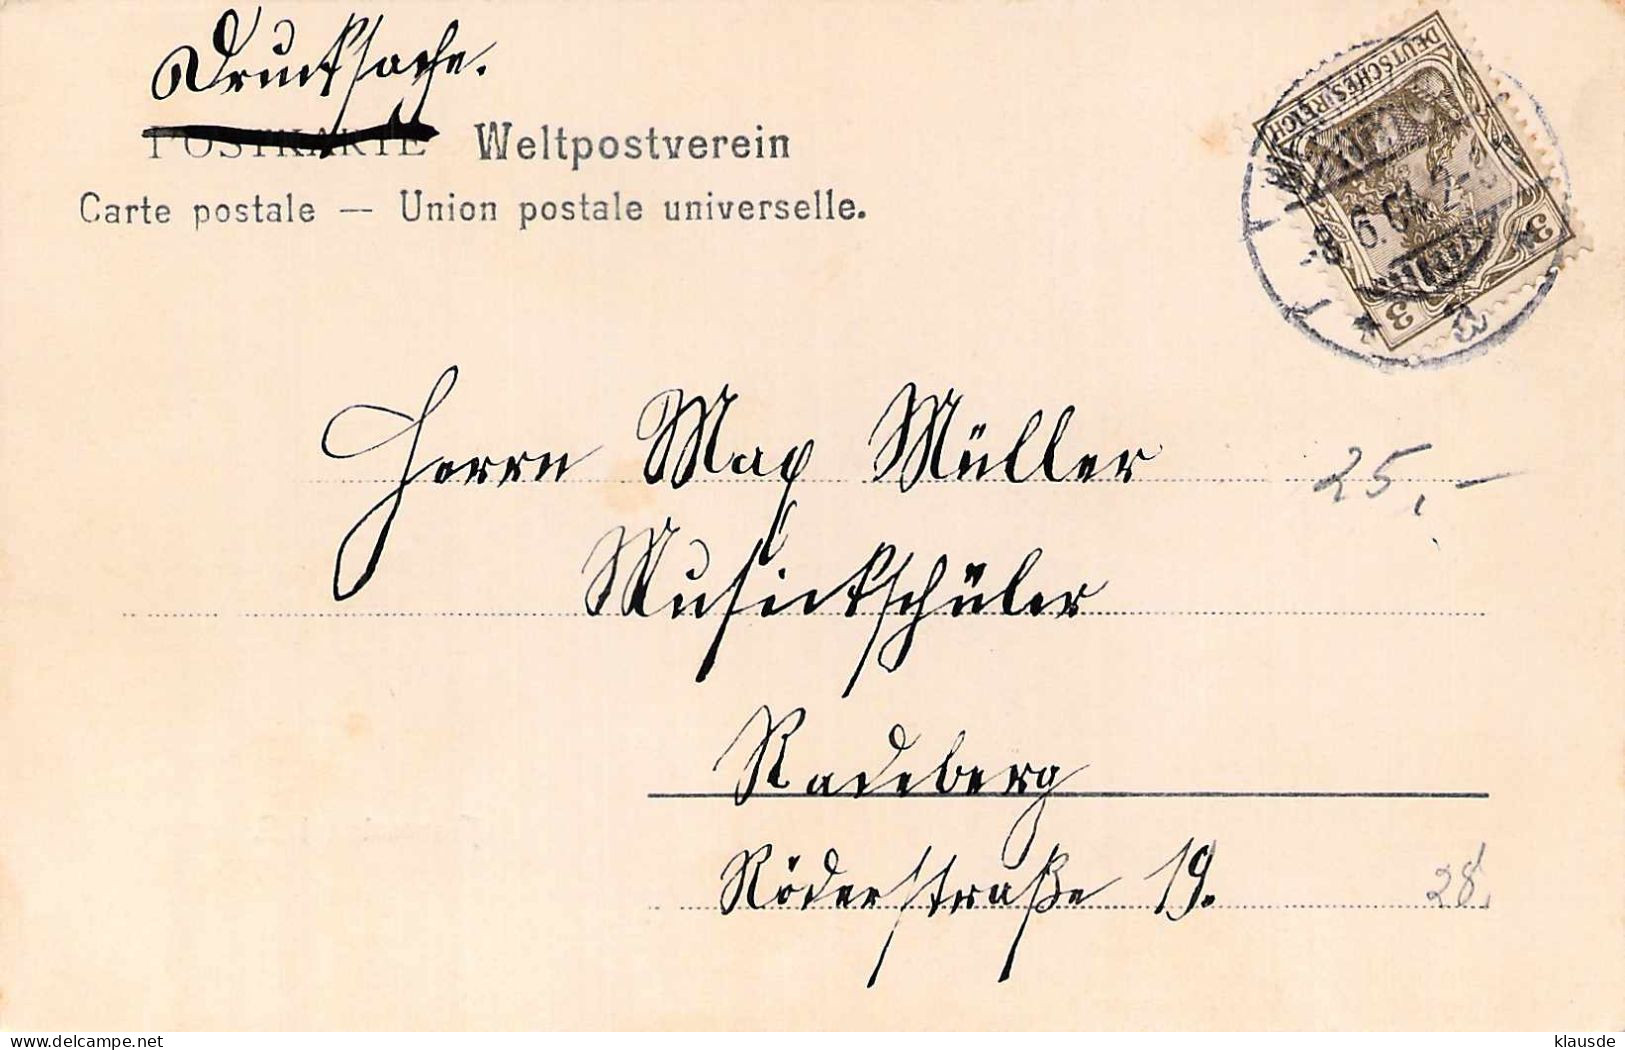 Drucksache.
POSTKARTE Weltpostverein
Carte postale — Union postale universelle.
DEUTSCHES REICH
3 3
6.04. 2-3
a
Herrn Max Müller
25,-
Musickschüler
Radeberg
Röderstraße 19.
28.
delcampe.net
klausde